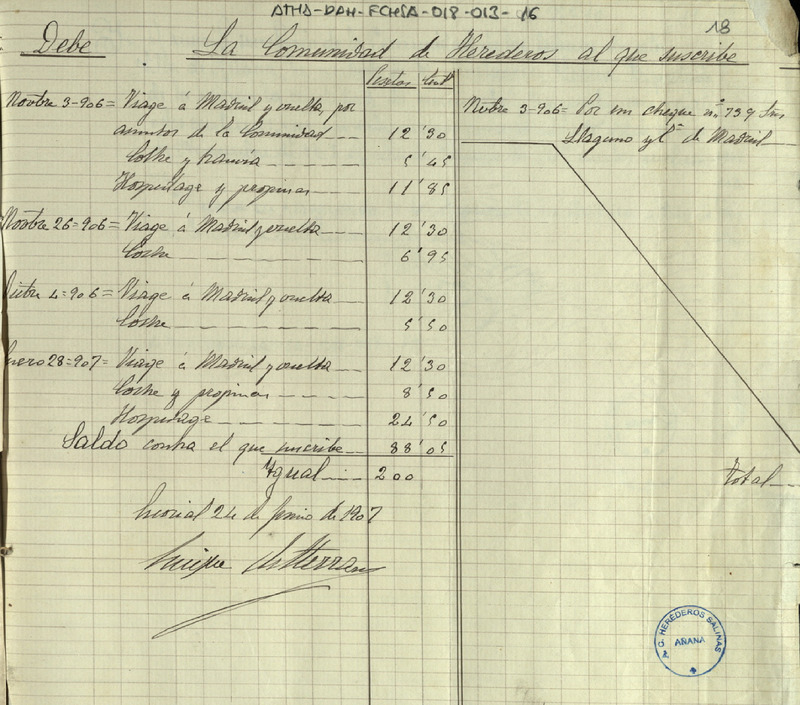 ATHA-DAH-FCHSA-018-013-16
18
Debe La Comunidad de Herederos al que suscribe
Pesetas Centº
Novbre 3-906= Viage á Madrid y vuelta, por
asuntos de la Comunidad 12'30
Coche y tranvía 5'45
Hospedage y propinas 11'85
Novbre 26=906= Viage á Madrid y vuelta 12'30
Coche 6'95
4=906= Viage á Madrid y vuelta 12'30
Coche 5'50
Enero 28=907= Viage á Madrid y vuelta 12'30
Coche y propinas 8'50
Hospedage 24'50
Saldo contra el que suscribe 88'05
Ygual 200
24 de Junio de 1907
Novbre 3-906= Por un cheque nº 739
Llaguno y Cª de Madrid
Total
C. HEREDEROS SALINAS
AÑANA